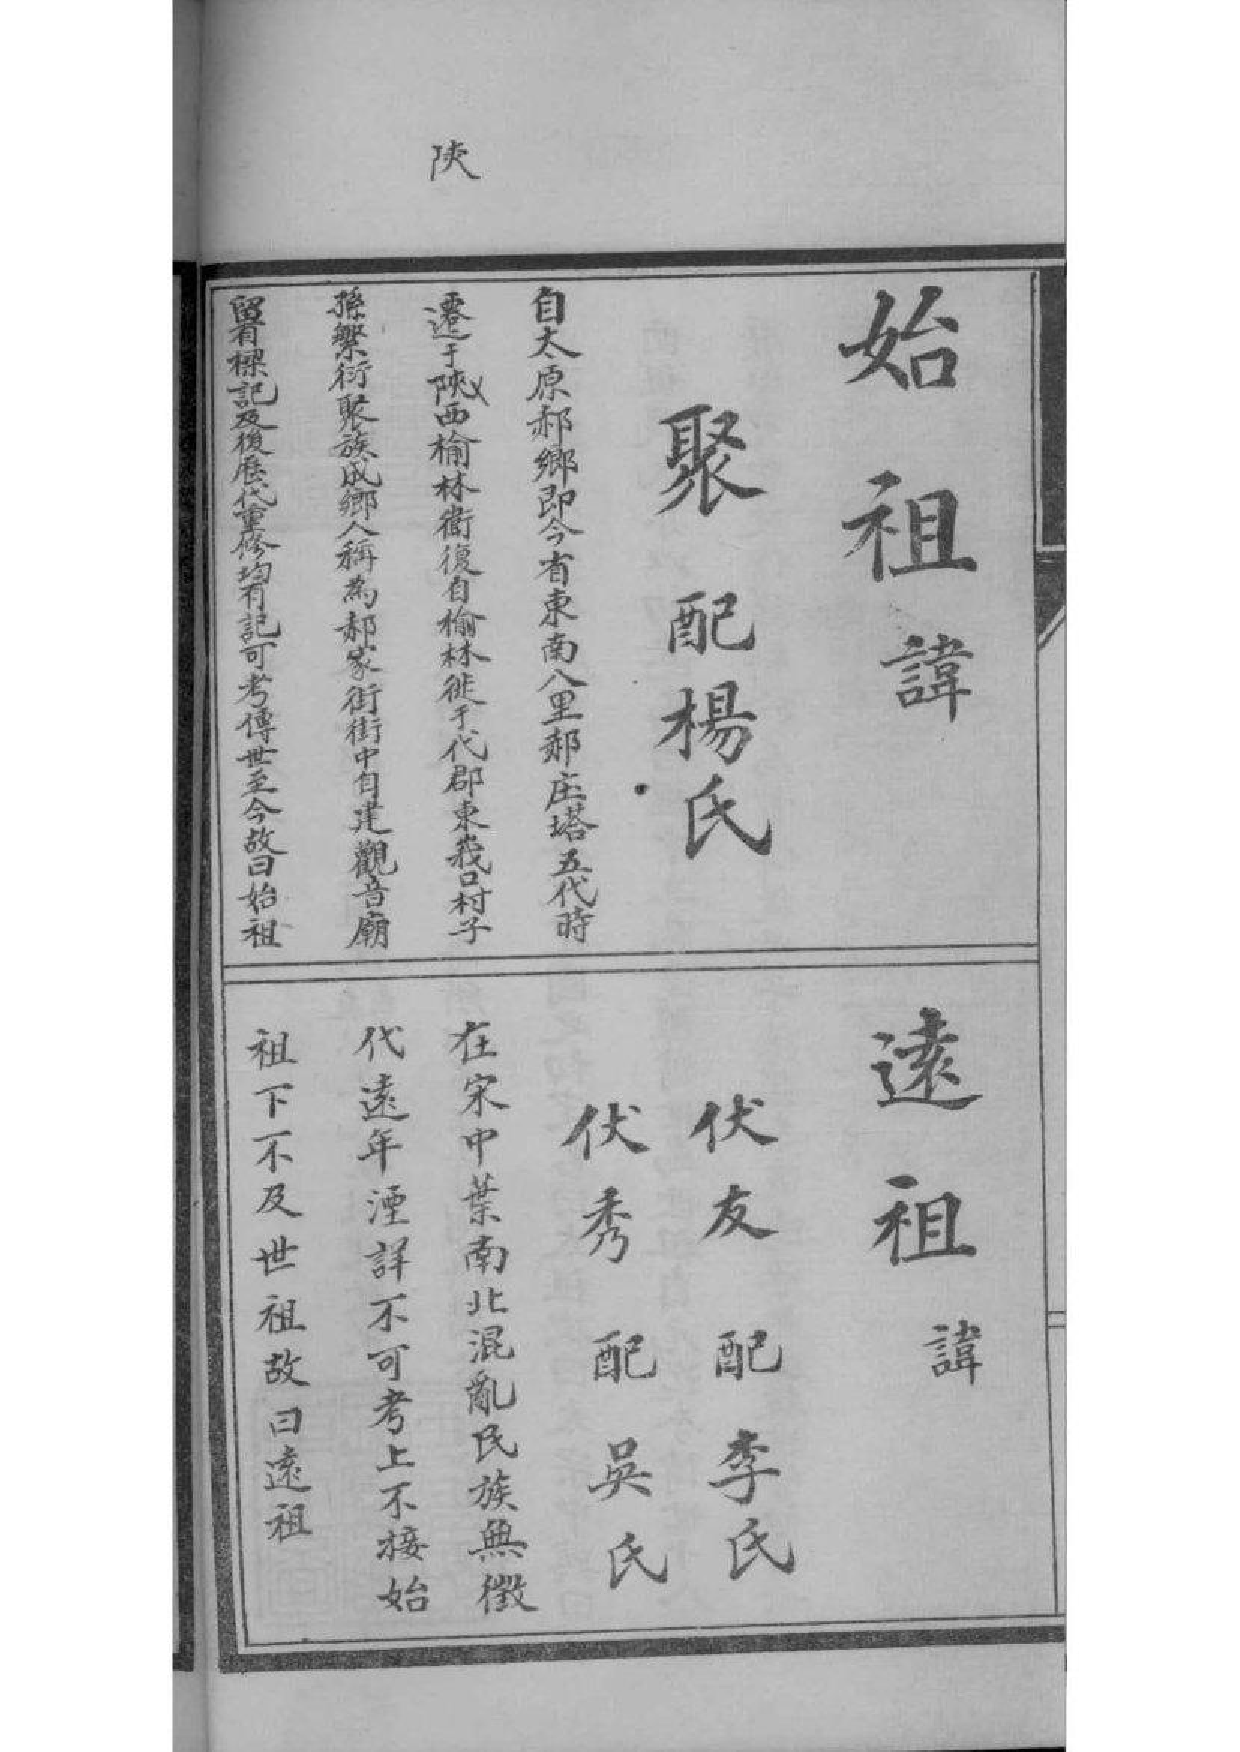 陝
始祖諱
聚 配楊氏
自太原郝鄉即今省東南八里郝庄塔五代時
遷于陝西榆林衛復自榆林徙于代郡東峩口村子
孫繁衍聚族成鄉人稱為郝家街街中自建觀音廟
留有樑記及後歷代重修均有記可考傳世至今故曰始祖
遠祖諱
伏友 配李氏
伏秀 配吳氏
在宋中葉南北混亂民族無徵
代遠年湮詳不可考上不接始
祖下不及世祖故曰遠祖